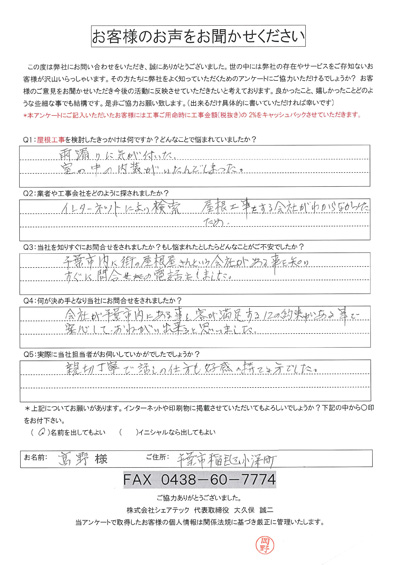 お客様のお声をお聞かせください
この度は弊社にお問い合わせをいただき、誠にありがとうございました。世の中には弊社の存在やサービスをご存知ないお
客様が沢山いらっしゃいます。その方たちに弊社をよく知っていただくためのアンケートにご協力いただけるでしょうか？ お客
様のご意見をお聞かせいただき今後の活動に反映させていただきたいと考えております。良かったこと、嬉しかったことどのよ
うな些細な事でも結構です。是非ご協力お願い致します。（出来るだけ具体的に書いていただければ幸いです）
*本アンケートにご記入いただいたお客様には工事ご用命時に工事金額（税抜き）の2%をキャッシュバックさせていただきます。
Q1：屋根工事を検討したきっかけは何ですか？どんなことで悩まれていましたか？
雨漏りに気が付いた。
室の中の内装がいたんでしまった。
Q2：業者や工事会社をどのように探されましたか？
インターネットにより検索 屋根工事をする会社がわからなかった
ため
Q3：当社を知りすぐにお問合せをされましたか？もし悩まれたとしたらどんなことがご不安でしたか？
千葉市内に街の屋根屋さんという会社がある事を知り
すぐに問合せの電話をしました。
Q4：何が決め手となり当社にお問合せをされましたか？
会社が千葉市内にある事と客が満足する12の約束がある事で
安心しておねがい出来ると思いました。
Q5：実際に当社担当者がお伺いしていかがでしたでしょうか？
親切丁寧で話しの仕方も好感の持てる方でした。
*上記についてお願いがあります。インターネットや印刷物に掲載させていただいてもよろしいでしょうか？下記の中から〇印
をお付け下さい。
（〇）名前を出してもよい （ ）イニシャルなら出してもよい
お名前： 高野 様 ご住所： 千葉市稲毛区小深町
FAX 0438-60-7774
ご協力ありがとうございました。
株式会社シェアテック 代表取締役 大久保 誠二
当アンケートで取得したお客様の個人情報は関係法規に基づき厳正に管理いたします。